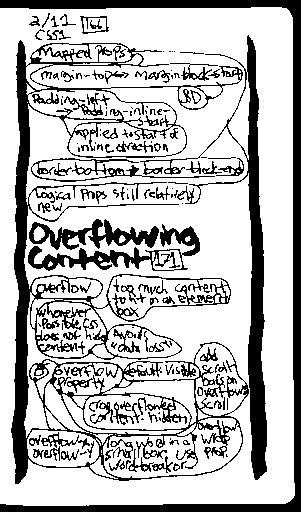 2/11 166
CSS1
Mapped Props
margin-top ↔ margin-block-start
BD
Padding-left
→ Padding-inline-start
Applied to start of
inline direction
border-bottom → border-block-end
Logical Props still relatively
new
Overflowing
Content 171
overflow
too much content
to fit in an element
box
whenever
Possible, CSS
does not hide
content
Avoid
"data loss"
overflow
Property
default: visible
add
scroll
bars on
overflow:
scroll
crop overflowed
content: hidden
overflow-x
overflow-y
long word in a
small box, use
word-break or
overflow
wrap
prop.